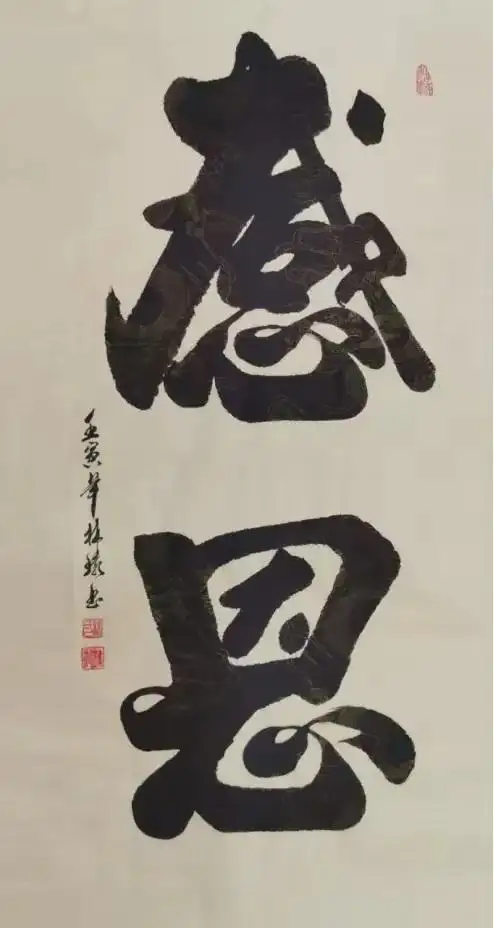 感恩
壬寅年林瑞书